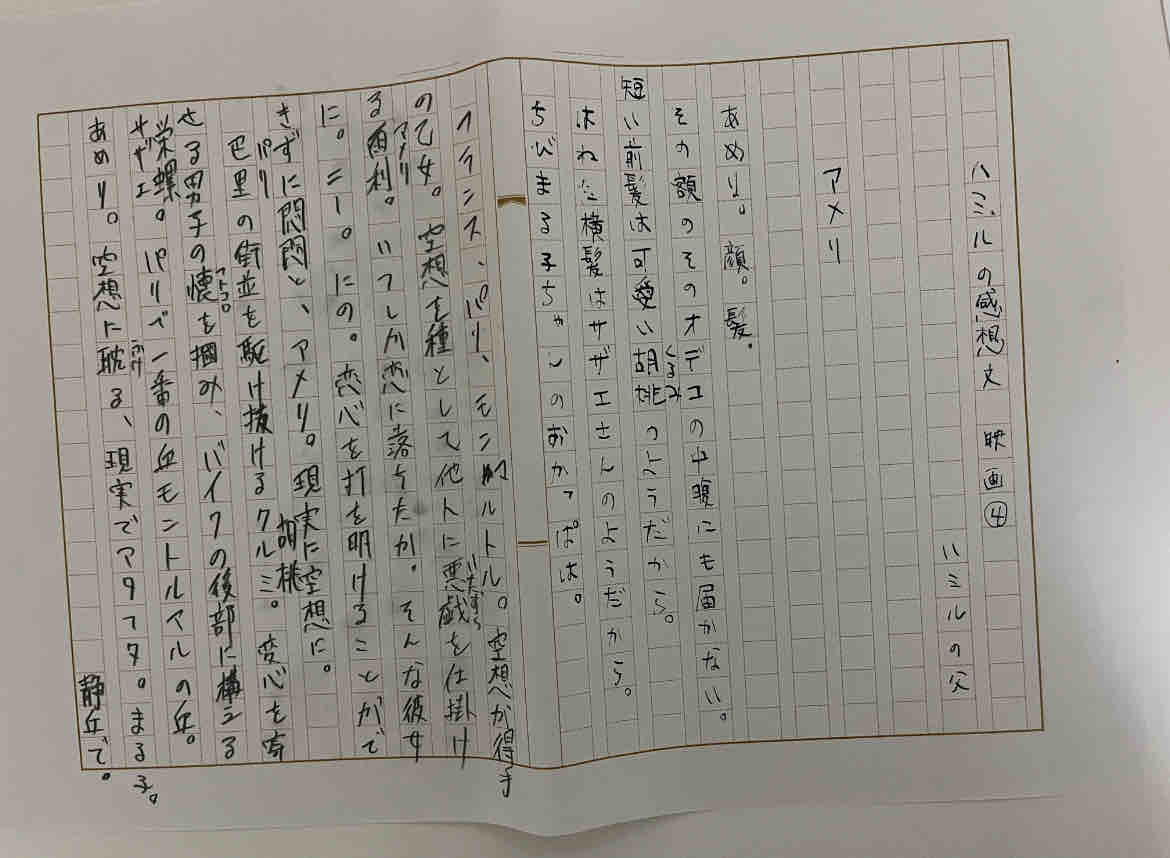 ハミルの感想文 映画④
ハミルの父
アメリ
あめり。顔。髪。
その額のそのオデコの中腹にも届かない。
短い前髪は可愛い胡桃のようだから。
くるみ
はねた横髪はサザエさんのようだから。
ちびまる子ちゃんのおかっぱは。
フランス、パリ、モンマルトル。空想が得手
の乙女。空想を種として他人に悪戯を仕掛け
いたずら
る雨利。いつしか恋に落ちたか。そんな彼女
アメリ
に。ニー。にの。恋心を打を明けることがで
きずに悶悶と、アメリ。現実に空想に。
巴里の街並を駆け抜けるクルミ。恋心を寄
パリ
胡桃
せる男子の懐を掴み、バイクの後部に構える
栄螺。パリで一番の丘モントルマルの丘。
サザエ
あめり。空想に耽る、現実でアタフタ。まる子。
ふけ
静丘で。